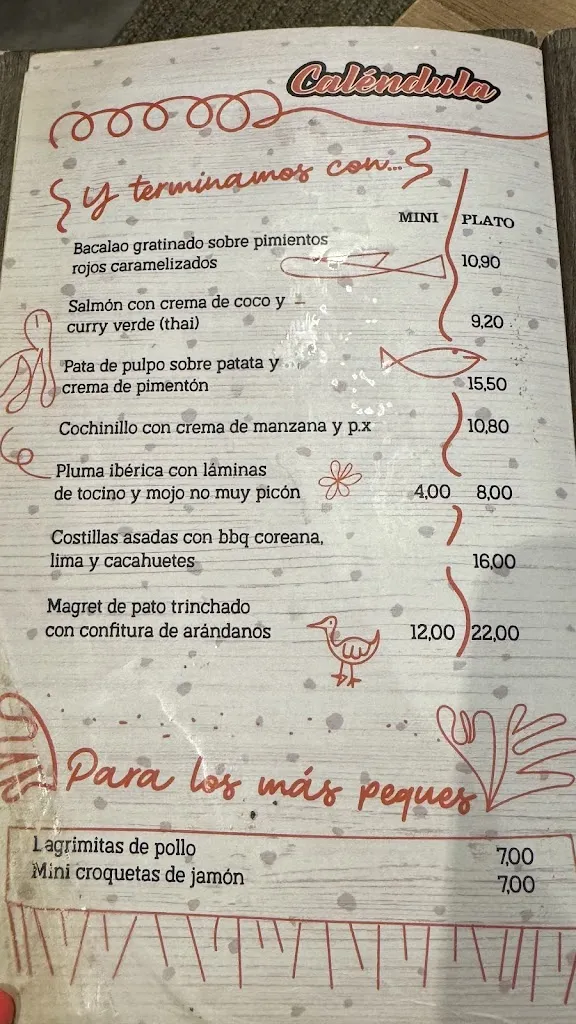 Caléndula
y terminamos con...
MINI PLATO
Bacalao gratinado sobre pimientos
rojos caramelizados 10,90
Salmón con crema de coco y
curry verde (thai) 9,20
Pata de pulpo sobre patata y
crema de pimentón 15,50
Cochinillo con crema de manzana y p.x 10,80
Pluma ibérica con láminas
de tocino y mojo no muy picón 4,00 8,00
Costillas asadas con bbq coreana,
lima y cacahuetes 16,00
Magret de pato trinchado
con confitura de arándanos 12,00 22,00
Para los más peques
Lagrimitas de pollo 7,00
Mini croquetas de jamón 7,00